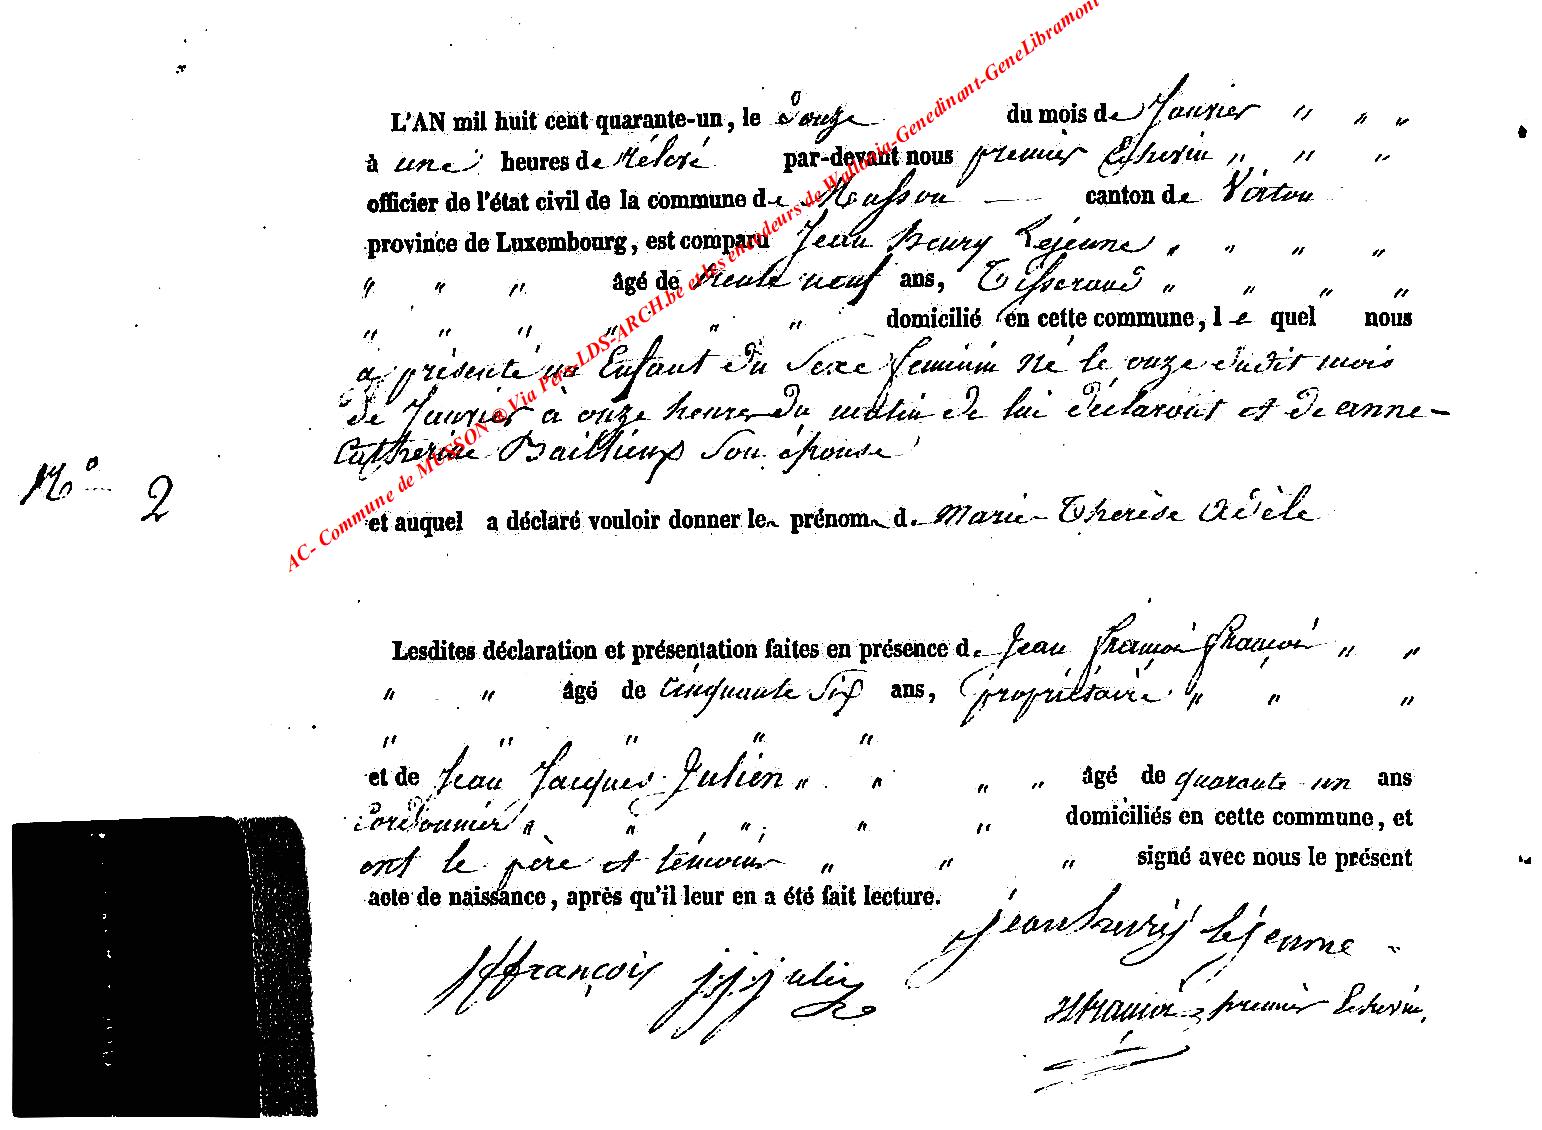 AC- Commune de MUSSON @ Via Pers-LDS-ARCH.be et les encodeurs de Wallonia-Genedinant-GeneLibramont
L'AN mil huit cent quarante-un, le Douze du mois de Janvier " " "
à une heures de Rélevé par-devant nous premier Echevin " " "
officier de l'état civil de la commune de Musson — canton de Virton
province de Luxembourg, est comparu Jean Henry Lejeune " " " "
" " " âgé de trente neuf ans, Tisserand " " " "
" " " " " " domicilié en cette commune, le quel nous
a présenté un Enfant du Sexe feminin né le onze dudit mois
de Janvier à onze heures du matin de lui déclarant et de anne-
Catherine Baillieux Son épouse
N° 2
et auquel a déclaré vouloir donner le prénom d. Marie Thérèse Adèle
Lesdites déclaration et présentation faites en présence d. Jean François François " "
" " âgé de Cinquante Six ans, propriétaire " " "
" " " " "
et de Jean Jacques Julien " " " " âgé de quarante un ans
Cordonnier " " " " " domiciliés en cette commune, et
ont le père et témoins " " " signé avec nous le présent
acte de naissance, après qu'il leur en a été fait lecture.
jean henry lejeune
jffrançois j.j. julien
premier Echevin.